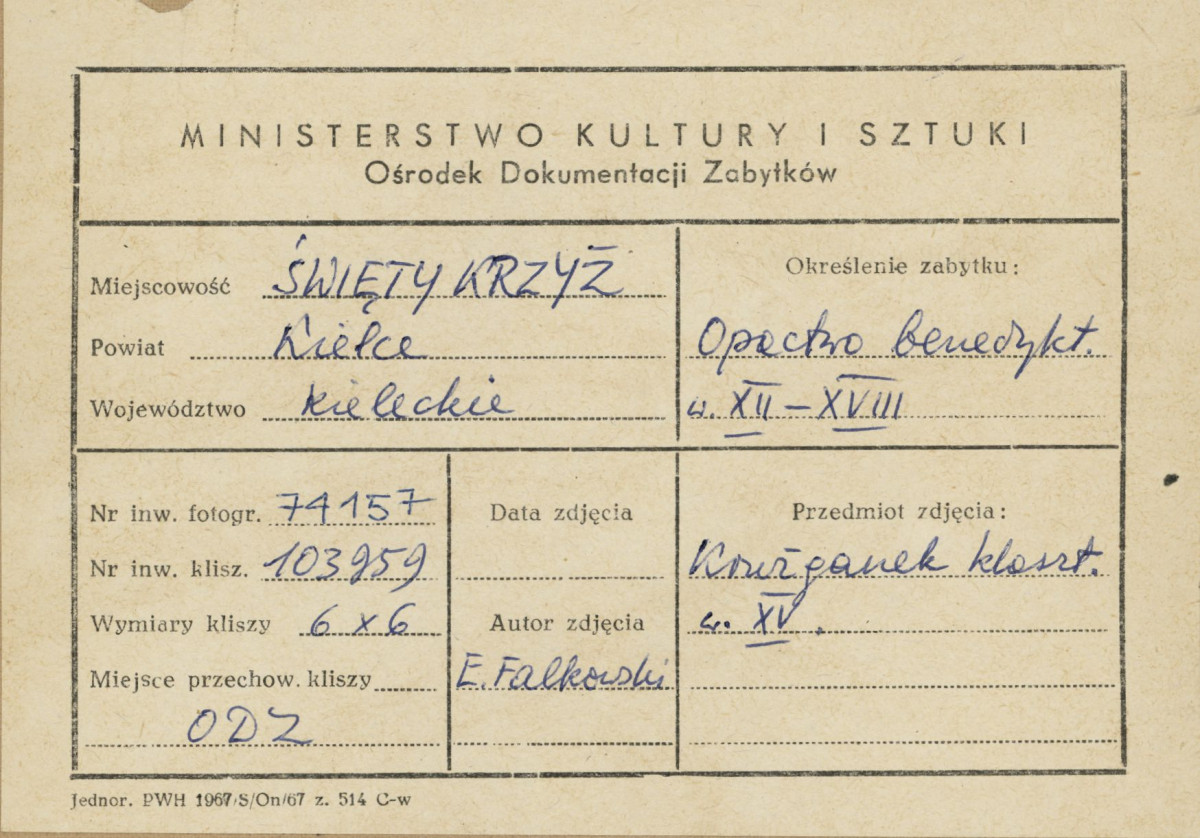 MINISTERSTWO KULTURY I SZTUKI
Ośrodek Dokumentacji Zabytków
Miejscowość ŚWIĘTY KRZYŻ
Powiat Kielce
Województwo kieleckie
Określenie zabytku:
Opactwo benedykt.
w. XII – XVIII
Nr inw. fotogr. 74157
Nr inw. klisz. 103959
Wymiary kliszy 6 x 6
Miejsce przechow. kliszy
ODZ
Data zdjęcia
Autor zdjęcia
E. Falkowski
Przedmiot zdjęcia:
Krużganek klaszt.
w. XV.
Jednor. PWH 1967/S/On/67 z. 514 C-w